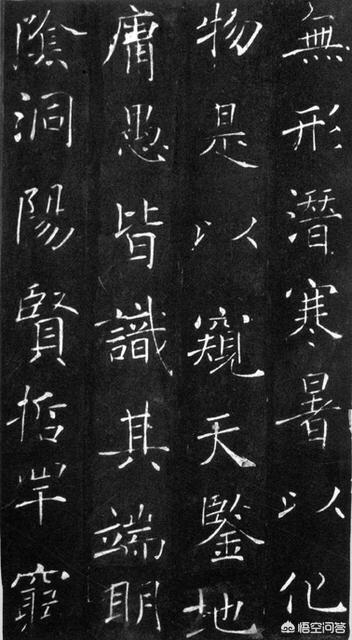 無形潛寒暑以化
物是以窺天鑒地
庸愚皆識其端明
陰洞陽賢哲罕窮
悟空问答